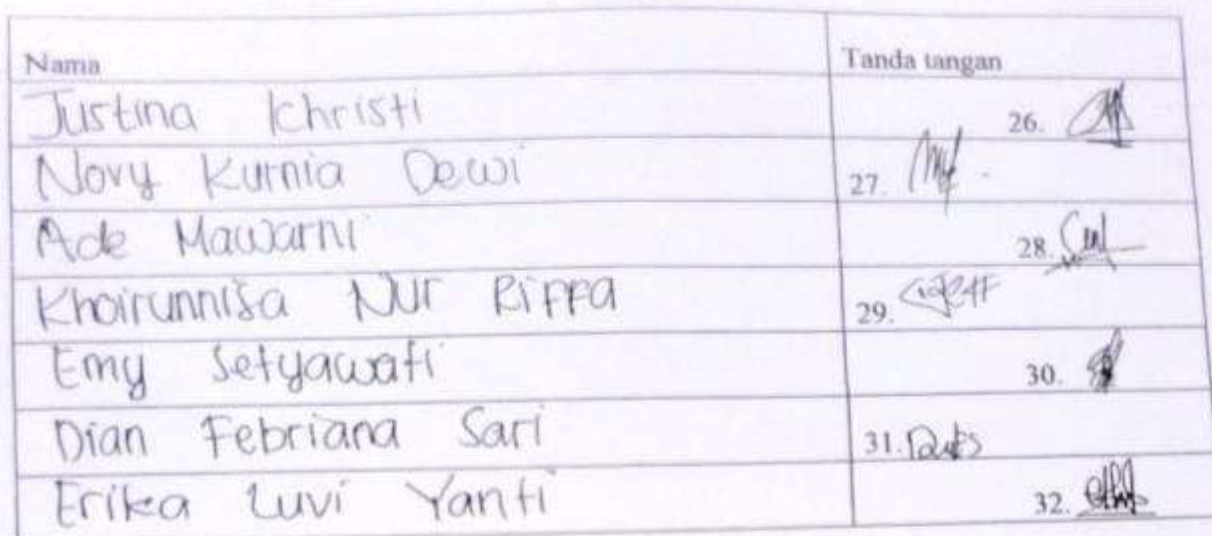 Nama Tanda tangan
Justina Ichristi 26.
Novy Kurnia Dewi 27.
Ade Mawarni 28.
Khoirunnisa Nur Riffa 29.
Emy Setyawati 30.
Dian Febriana Sari 31.
Erika Luvi Yanti 32.